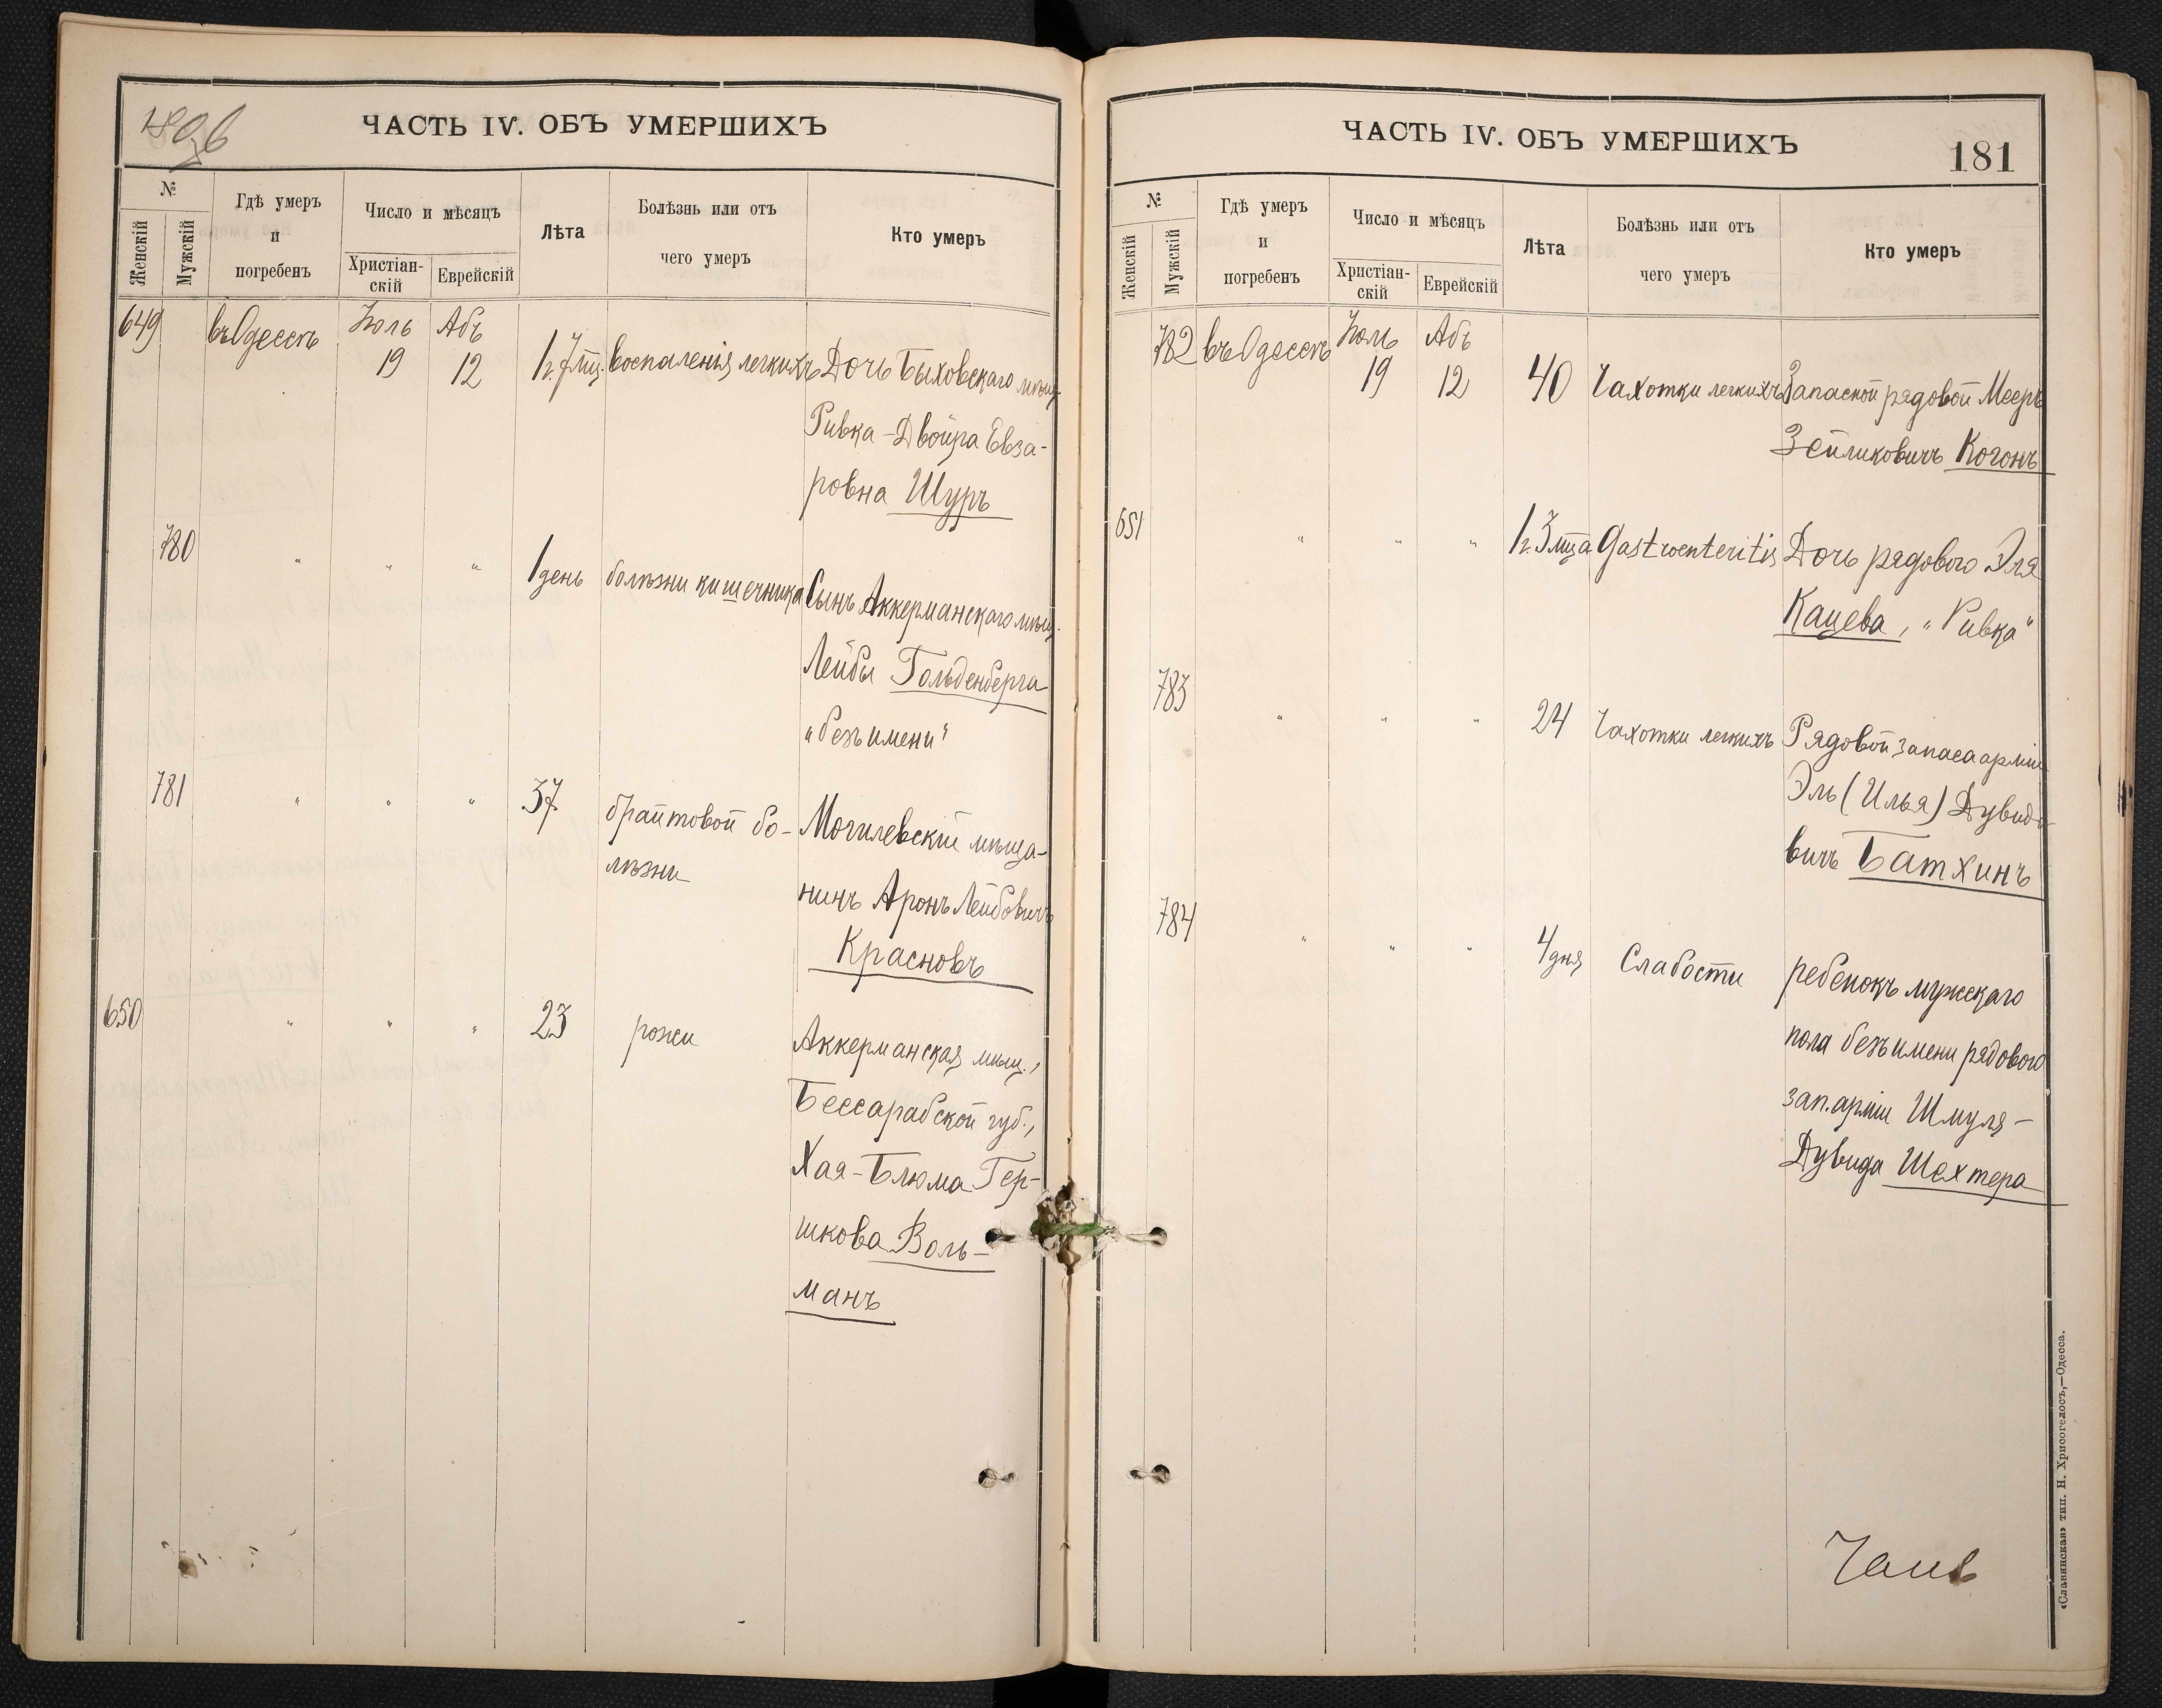 1896
ЧАСТЬ IV. ОБЪ УМЕРШИХЪ
№
Женскій
Мужскій
Гдѣ умеръ
и
погребенъ
Число и мѣсяцъ
Христіан-
скій
Еврейскій
Лѣта
Болѣзнь или отъ
чего умеръ
Кто умеръ
649 въ Одессѣ Іюль 19 Абъ 12 1 г. 7 мц. воспаленія легкихъ Дочь Быховскаго мѣщ.
Ривка-Двойра Евза-
ровна Шуръ
780 " " " 1 день болѣзни кишечника Сынъ Аккерманскаго мѣщ.
Лейбы Гольденберга
"безъ имени"
781 " " " 37 брайтовой бо- Могилевскій мѣща-
лѣзни нинъ Аронъ Лейбовичъ
Красновъ
650 " " " 23 рожи Аккерманская мѣщ.,
Бессарабской губ.,
Хая-Блюма Гер-
шкова Воль-
манъ
ЧАСТЬ IV. ОБЪ УМЕРШИХЪ
181
№
Женскій
Мужскій
Гдѣ умеръ
и
погребенъ
Число и мѣсяцъ
Христіан-
скій
Еврейскій
Лѣта
Болѣзнь или отъ
чего умеръ
Кто умеръ
782 въ Одессѣ Іюль 19 Абъ 12 40 Чахотки легкихъ Запасной рядовой Мееръ
Зейликовичъ Когонъ
651 " " " 1 г. 3 мца Gastroenteritis Дочь рядового Эля
Кацева, "Ривка"
783 " " " 24 Чахотки легкихъ Рядовой запаса арміи
Эль (Илья) Дувидо-
вичъ Батхинъ
784 " " " 4 дня Слабости ребенокъ мужскаго
пола безъ имени рядового
зап. арміи Шмуля-
Дувида Шехтера
«Славянская» тип. Н. Хрисогелосъ,—Одесса.